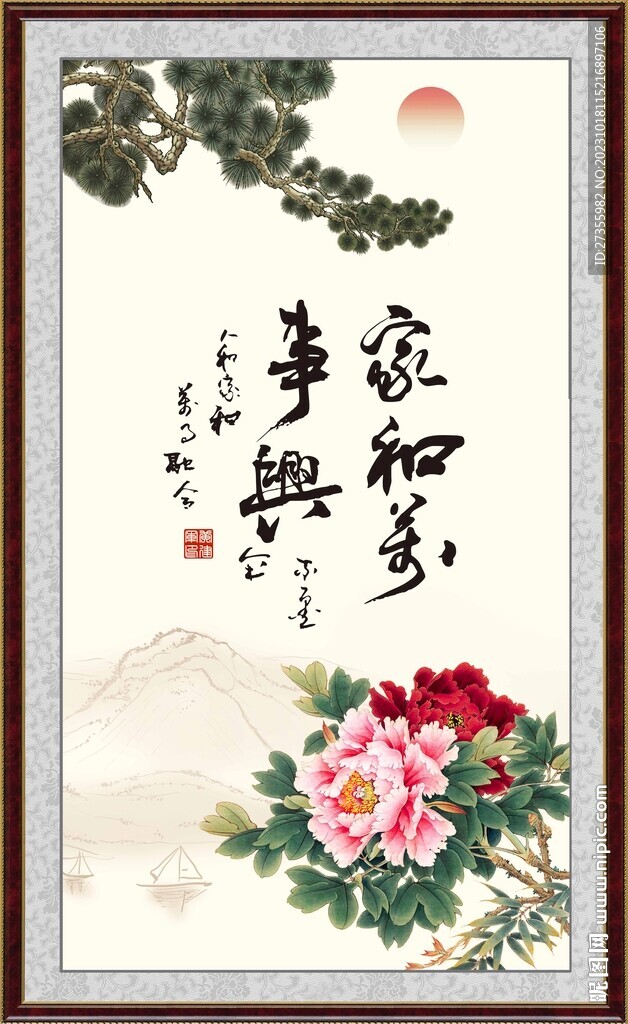 家和萬
事興
人和家和
萬事融合
ID:27355982 NO:20231018115216897106
昵图网 www.nipic.com